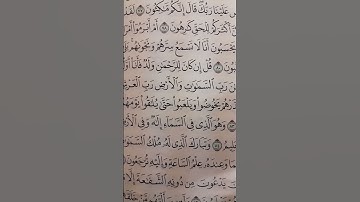 عَلَيْنَا رَبُّكَ قَالَ إِنَّكُم مَّٰكِثُونَ ٧٧
أَكْثَرَكُمْ لِلْحَقِّ كَٰرِهُونَ ٧٨ أَمْ أَبْرَمُوٓا۟
يَحْسَبُونَ أَنَّا لَا نَسْمَعُ سِرَّهُمْ وَنَجْوَىٰهُم
٨٠ قُلْ إِن كَانَ لِلرَّحْمَٰنِ وَلَدٌ فَأَنَا۠
رَبِّ ٱلسَّمَٰوَٰتِ وَٱلْأَرْضِ رَبِّ
يَخُوضُوا۟ وَيَلْعَبُوا۟ حَتَّىٰ يُلَٰقُوا۟ يَوْمَهُمُ
وَهُوَ ٱلَّذِى فِى ٱلسَّمَآءِ إِلَٰهٌ وَفِى
٨٤ وَتَبَارَكَ ٱلَّذِى لَهُۥ مُلْكُ
وَعِندَهُۥ عِلْمُ ٱلسَّاعَةِ وَإِلَيْهِ تُرْجَعُونَ
يَدْعُونَ مِن دُونِهِ ٱلشَّفَٰعَةَ إِلَّا
سَأَلْتَهُم مَّنْ